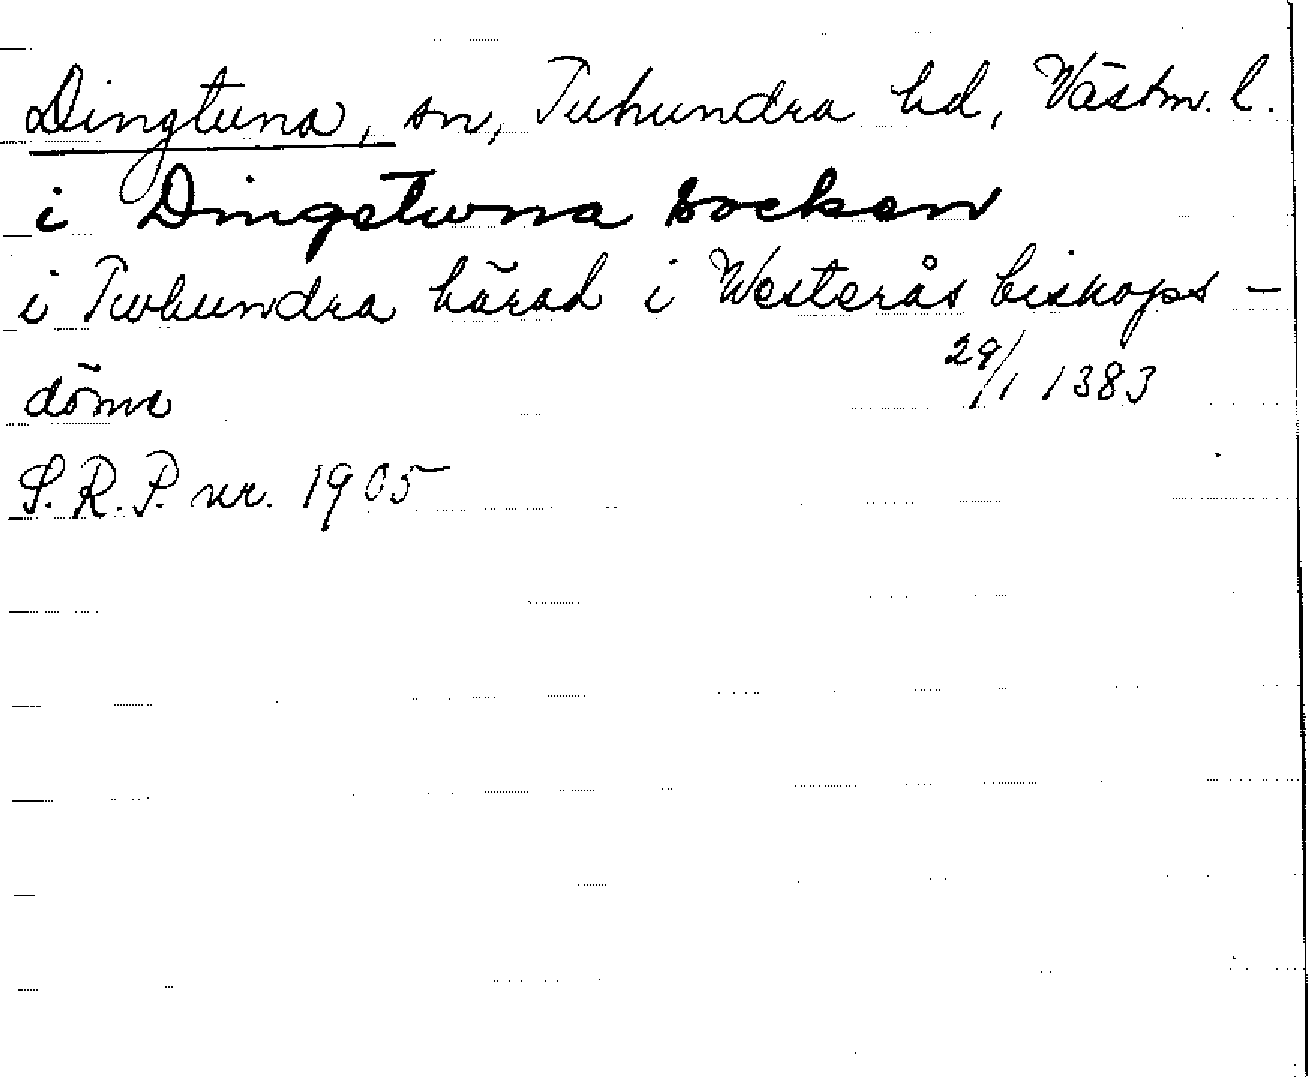 Dingtuna, sn, Tuhundra hd, Västm. l.
i Dingstuna socken
i Twhundra härad i Westerås biskops-
döme
29/1 1383
S.R.P. nr. 1905